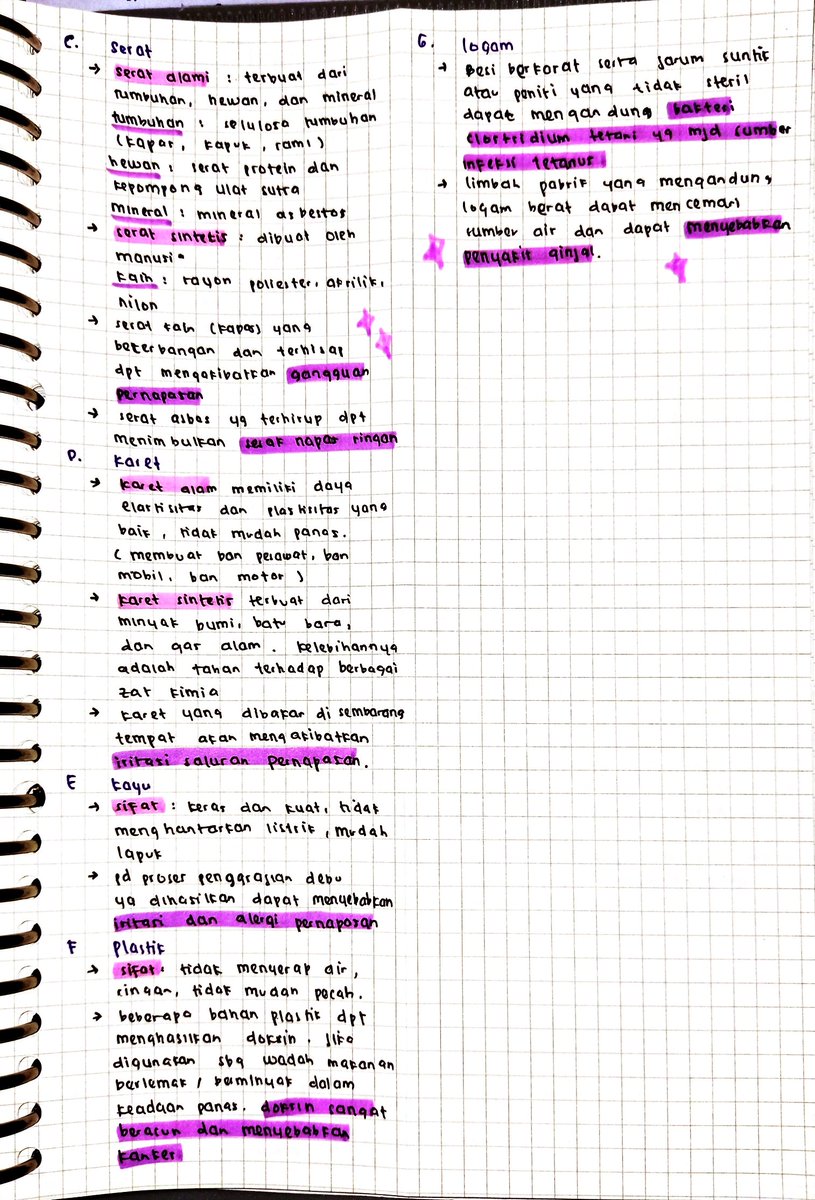 C. Serat
→ serat alami : terbuat dari
tumbuhan, hewan, dan mineral
tumbuhan : selulosa tumbuhan
(kapas, kapuk, rami)
hewan : serat protein dan
kepompong ulat sutra
mineral : mineral asbestos
→ serat sintetis : dibuat oleh
manusia
kain : rayon poliester, akrilik,
nilon
→ serat kain (kapas) yang
beterbangan dan terhisap
dpt mengakibatkan gangguan
pernapasan
→ serat asbes yg terhirup dpt
menimbulkan sesak napas ringan
D. Karet
→ karet alam memiliki daya
elastisitas dan plastisitas yang
baik, tidak mudah panas.
(membuat ban pesawat, ban
mobil, ban motor)
→ karet sintetis terbuat dari
minyak bumi, batu bara,
dan gas alam. kelebihannya
adalah tahan terhadap berbagai
zat kimia
→ karet yang dibakar di sembarang
tempat akan mengakibatkan
iritasi saluran pernapasan.
E Kayu
→ sifat : keras dan kuat, tidak
menghantarkan listrik, mudah
lapuk
→ pd proses penggrasian debu
yg dihasilkan dapat menyebabkan
iritasi dan alergi pernapasan
F Plastik
→ sifat : tidak menyerap air,
ringan, tidak mudah pecah.
→ beberapa bahan plastik dpt
menghasilkan doksin. Jika
digunakan sbg wadah makanan
berlemak / berminyak dalam
keadaan panas. doksin sangat
beracun dan menyebabkan
kanker
G. logam
→ Besi berkarat serta jarum suntik
atau peniti yang tidak steril
dapat mengandung bakteri
clostridium tetani yg mjd sumber
infeksi tetanus
→ limbah pabrik yang mengandung
logam berat dapat mencemari
sumber air dan dapat menyebabkan
penyakit ginjal.